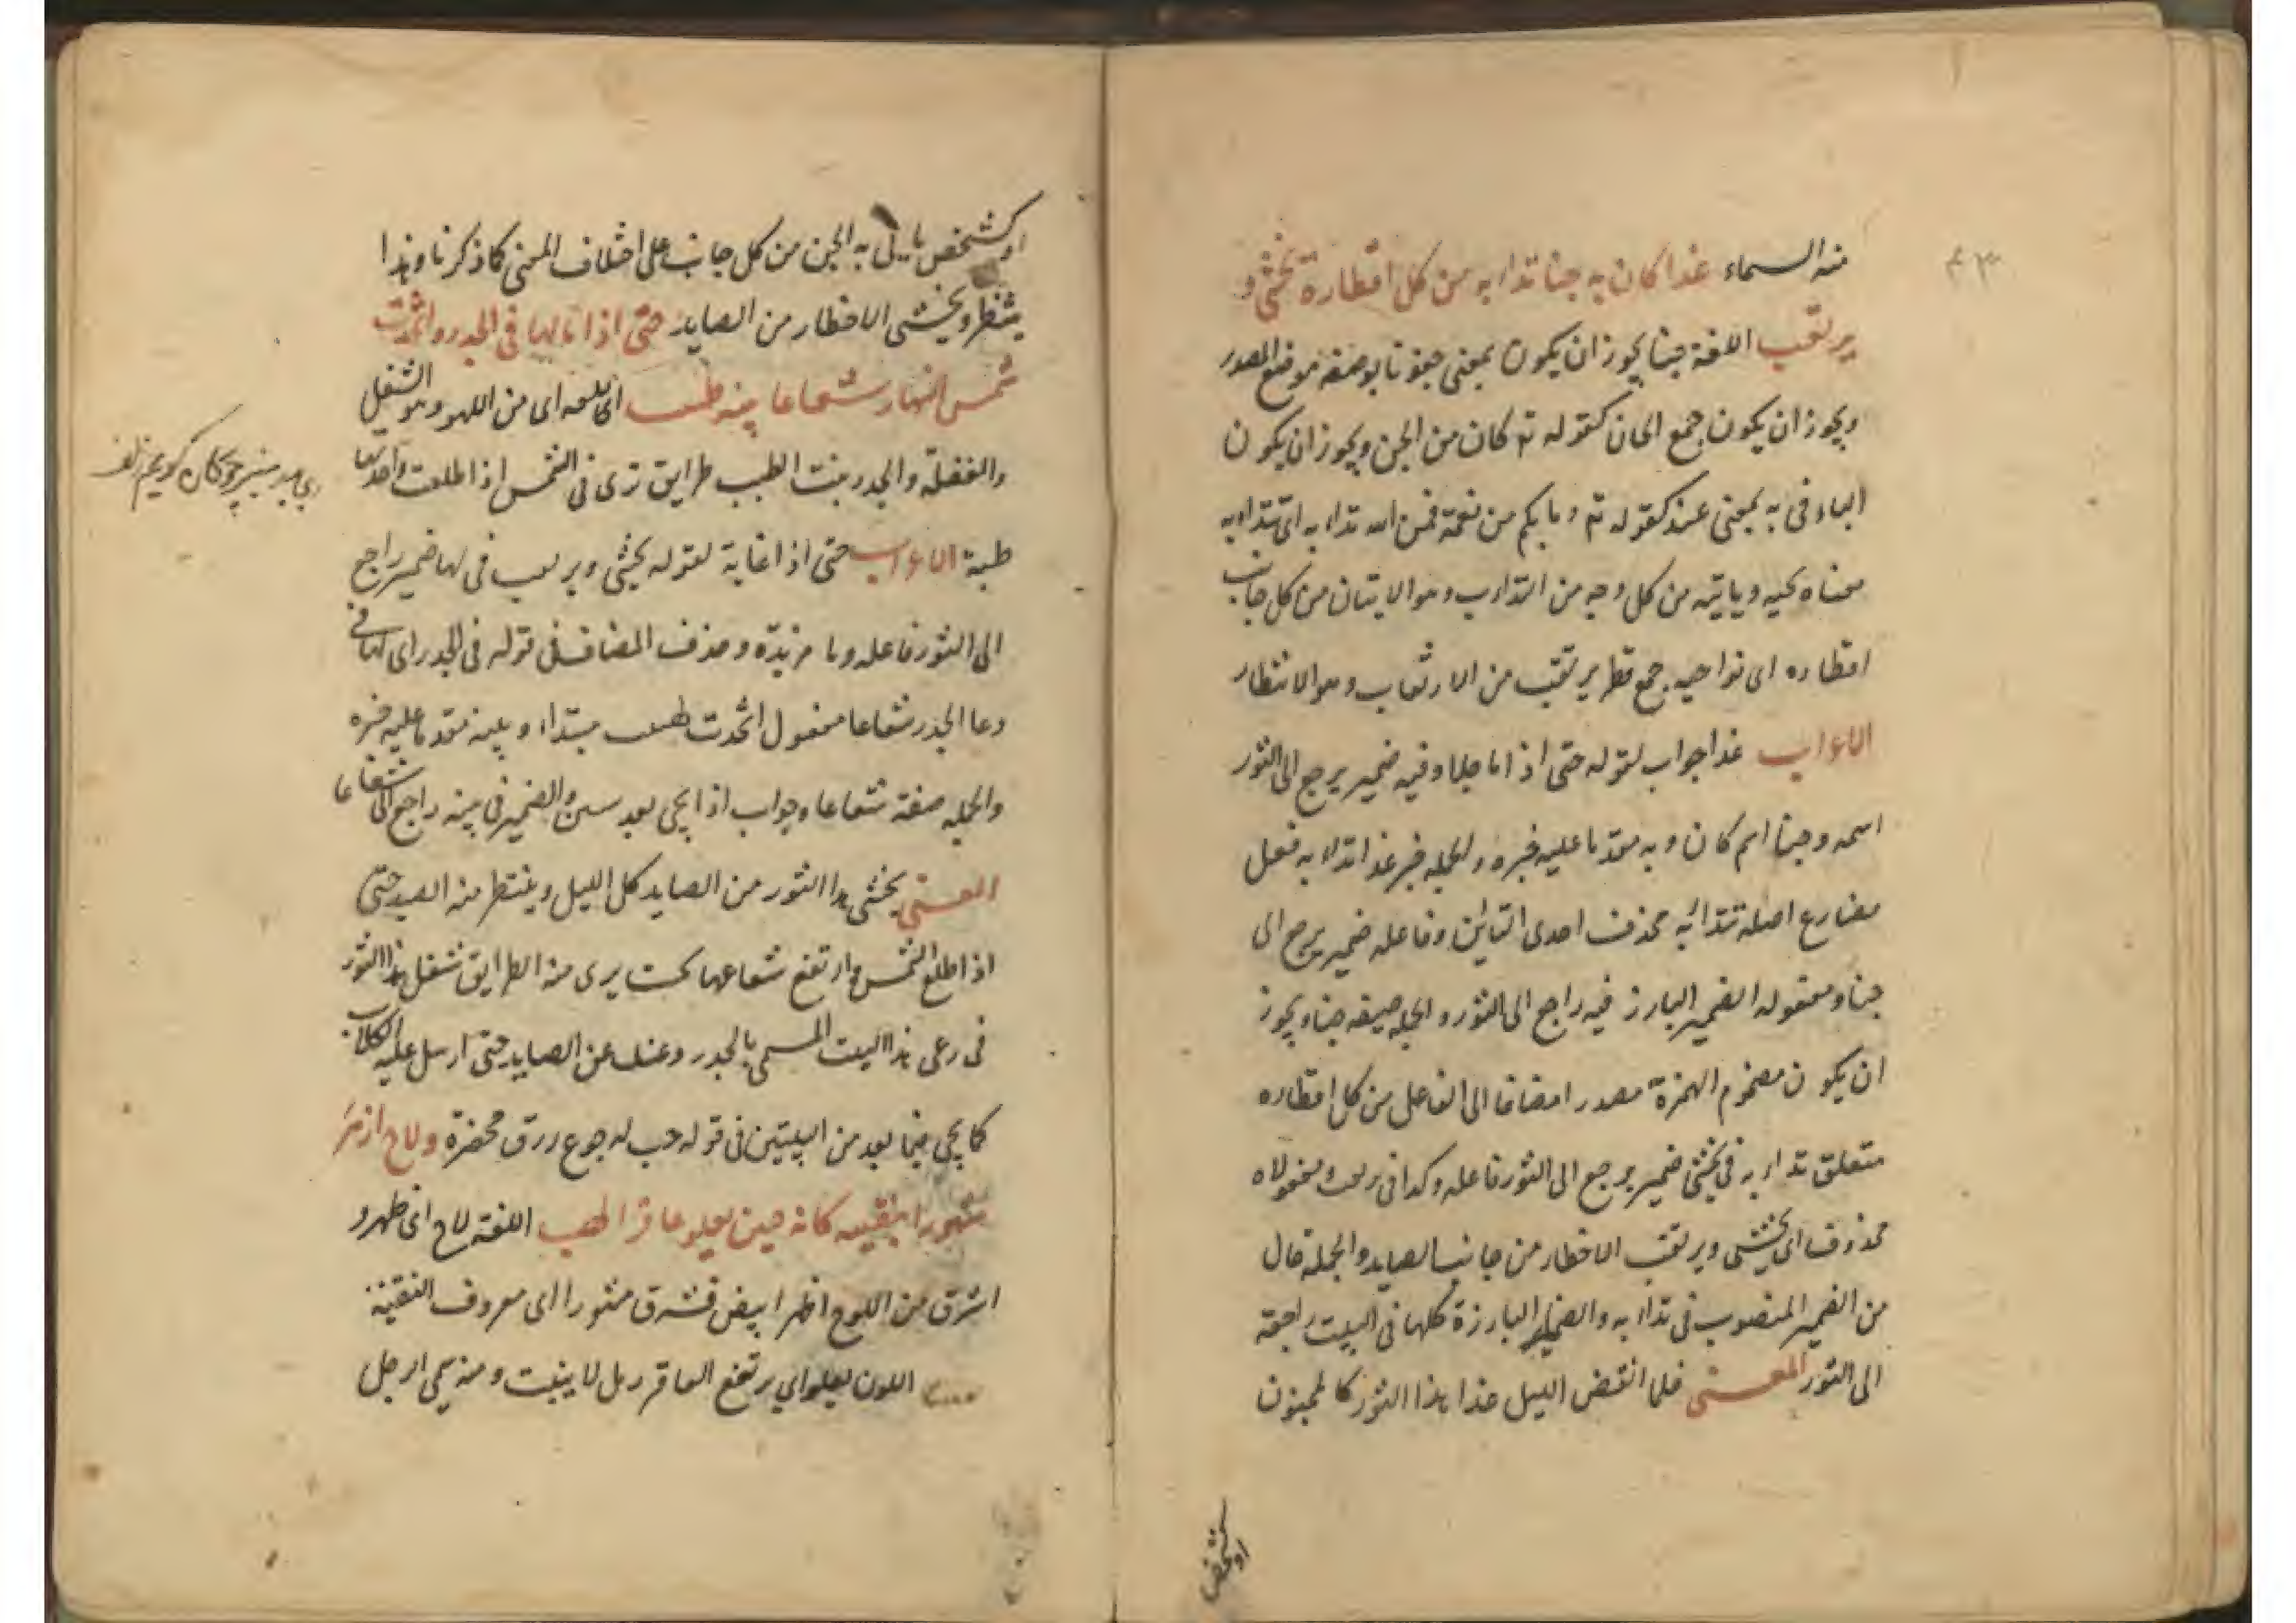 منه السماء غدا كان به جنا تداابه من كل اقطاره يخشى و
يرتقب اللغة جنا يجوز ان يكون بمعنى جنونا بوصفه موضع المصدر
ويجوز ان يكون جمع الجان كقوله تع كان من الجن ويجوز ان يكون
الباء فى به بمعنى عند كقوله تع وما بكم من نعمة فمن الله تداابه اى تتداابه
معناه يجيه وياتيه من كل وجه من التداوب وهو الاتيان من كل جانب
اقطاره اى نواحيه جمع قطر يرتقب من الارتقاب وهو الانتظار
الاعراب غدا جواب لقوله حتى اذا ما جلا وفيه ضمير يرجع الى الثور
اسمه وجنا اسم كان و به مقدما عليه خبره والجمله خبر غدا تداابه فعل
مضارع اصله تتداابه محذف احدى التائين وفاعله ضمير يرجع الى
جنا ومفعوله الضمير البارز فيه راجع الى الثور والجمله صفة جنا ويجوز
ان يكون مضموم الهمزة مصدرا مضافا الى الفاعل من كل اقطاره
متعلق تداابه فى يخشى ضمير يرجع الى الثور فاعله وكذا فى ومفعولاه
محذوف اى يخشى ويرتقب الاخطار من جانب الصايد والجملة حال
من الضمير المنصوب فى تداابه والضماير البارزة كلها فى البيت راجعة
الى الثور المعنى فلما انقضى الليل غدا هذا الثور كالمجنون
او كشخص
او كشخص ياتى به الجن من كل جانب على اختلاف المعنى كما ذكرنا وهذا
ينتظر ويخشى الاخطار من الصايد حتى اذا ما لها فى الجدر واتخذت
شمس النهار شعاعا بينه طبب اى من اللهو وهو الشغل
والغفلة والجدر نبت الطبب طرايق ترى فى الشمس اذا طلعت واحدتها
طبة الاعراب حتى اذا غاية لقوله يخشى ويرتقب فى لها ضمير راجع
الى الثور فاعله وما مزيدة وحذف المضاف فى قوله فى الجدر اى لها فى
رعى الجدر شعاعا مفعول اتخذت طبب مبتداء و بينه مقدما عليه خبره
والجمله صفة شعاعا وجواب اذا يجى بعد والضمير فى بينه راجع الى شعاعا
المعنى يخشى هذا الثور من الصايد كل الليل وينتظر منه الصيد حتى
اذا طلع الشمس وارتفع شعاعها بحيث يرى منه الطرايق شغل هذا الثور
فى رعى هذا البيت المسمى بالجدر وغفل عن الصايد حتى ارسل عليه الكلاب
كما يجى فيما بعد من البيتين فى قوله هب له جوع زرق محضرة ولاح ازهر
مشهور بنقبته كانه حين يعلو عاقرا لهب اللغة لاح اى ظهر و
اشرق من اللوح ازهر ابيض مشرق مشهورا اى معروف النقبة
اللون يعلو اى يرتفع العاقر رمل لا ينبت ومنه سمى الرجل